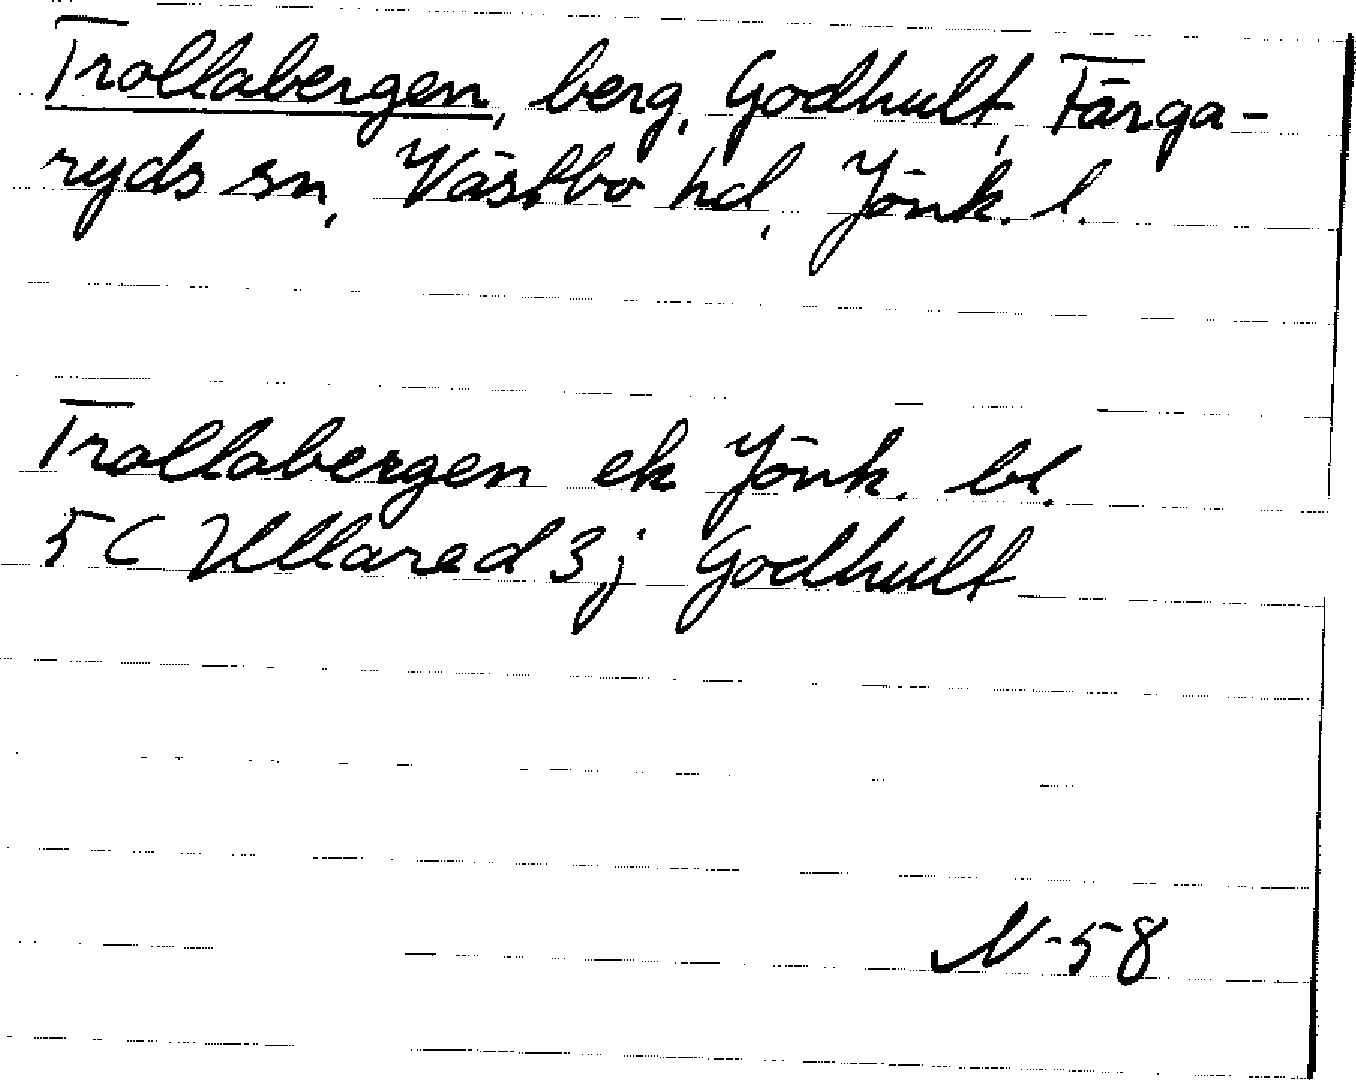 Trollabergen, berg, Godhult, Färga-
ryds sn, Västbo hd, Jönk. l.
Trollabergen ek Jönk. bl.
5C Ullared 3j Godhult
N-58